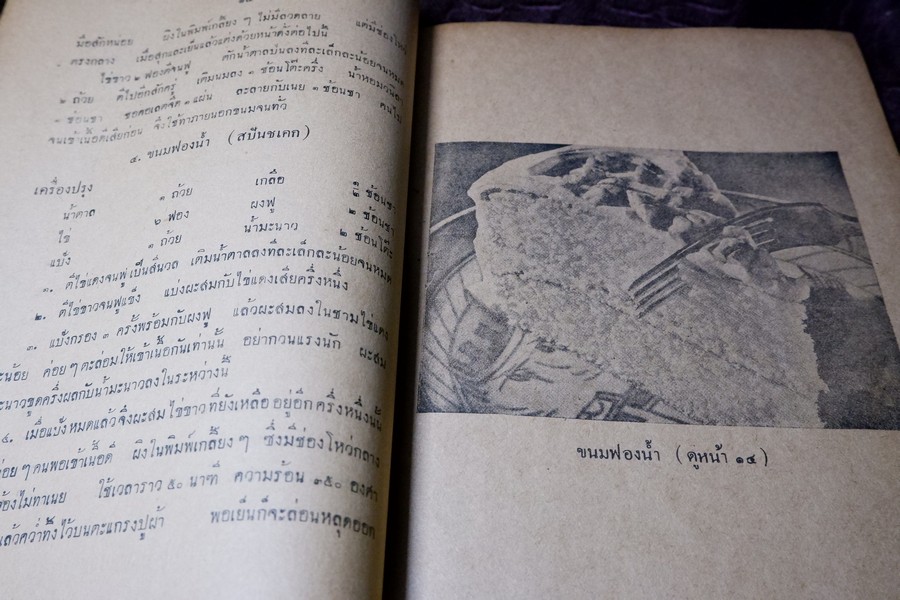 มือสักหน่อย ผิงในพิมพ์เกลี้ยง ๆ ไม่มีลวดลาย แต่มีช่องโหว่
ตรงกลาง เมื่อสุกและเย็นแล้วแต่งด้วยหน้าดังต่อไปนี้
ไข่ขาว ๒ ฟองตีจนฟู ตักน้ำตาลป่นลงทีละเล็กละน้อยจนหมด
๒ ถ้วย ตีไปอีกสักครู่ เติมนมลง ๑ ช้อนโต๊ะครึ่ง น้ำหอมวนิลา
๑ ช้อนชา ชอคอเลตจืด ๑ แผ่น ละลายกับเนย ๑ ช้อนชา คนไป
จนเข้าเนื้อดีเสียก่อน จึงใช้ทาภายนอกขนมจนทั่ว
๔. ขนมฟองน้ำ (สปันชเคก)
เครื่องปรุง
น้ำตาล ๑ ถ้วย เกลือ ช้อนชา
ไข่ ๖ ฟอง ผงฟู ช้อนชา
แป้ง ๑ ถ้วย น้ำมะนาว ๒ ช้อนโต๊ะ
๑. ตีไข่แดงจนฟูเป็นสีนวล เติมน้ำตาลลงทีละเล็กละน้อยจนหมด
๒. ตีไข่ขาวจนฟูแข็ง แบ่งผสมกับไข่แดงเสียครึ่งหนึ่ง
๓. แป้งกรอง ๓ ครั้งพร้อมกับผงฟู แล้วผสมลงในชามไข่แดง
ละน้อย ค่อย ๆ ตะล่อมให้เข้าเนื้อกันเท่านั้น อย่ากวนแรงนัก ผะสม
มะนาวขูดครึ่งผลกับน้ำมะนาวลงในระหว่างนี้
๔. เมื่อแป้งหมดแล้วจึงผะสมไข่ขาวที่ยังเหลืออยู่อีกครึ่งหนึ่งนั้น
ค่อย ๆ คนพอเข้าเนื้อดี ผิงในพิมพ์เกลี้ยง ๆ ซึ่งมีช่องโหว่กลาง
ต้องไม่ทาเนย ใช้เวลาราว ๕๐ นาฑี ความร้อน ๓๕๐ องศา
แล้วคว่ำทิ้งไว้บนตะแกรงปูผ้า พอเย็นก็จะล่อนหลุดออก
ขนมฟองน้ำ (ดูหน้า ๑๔)